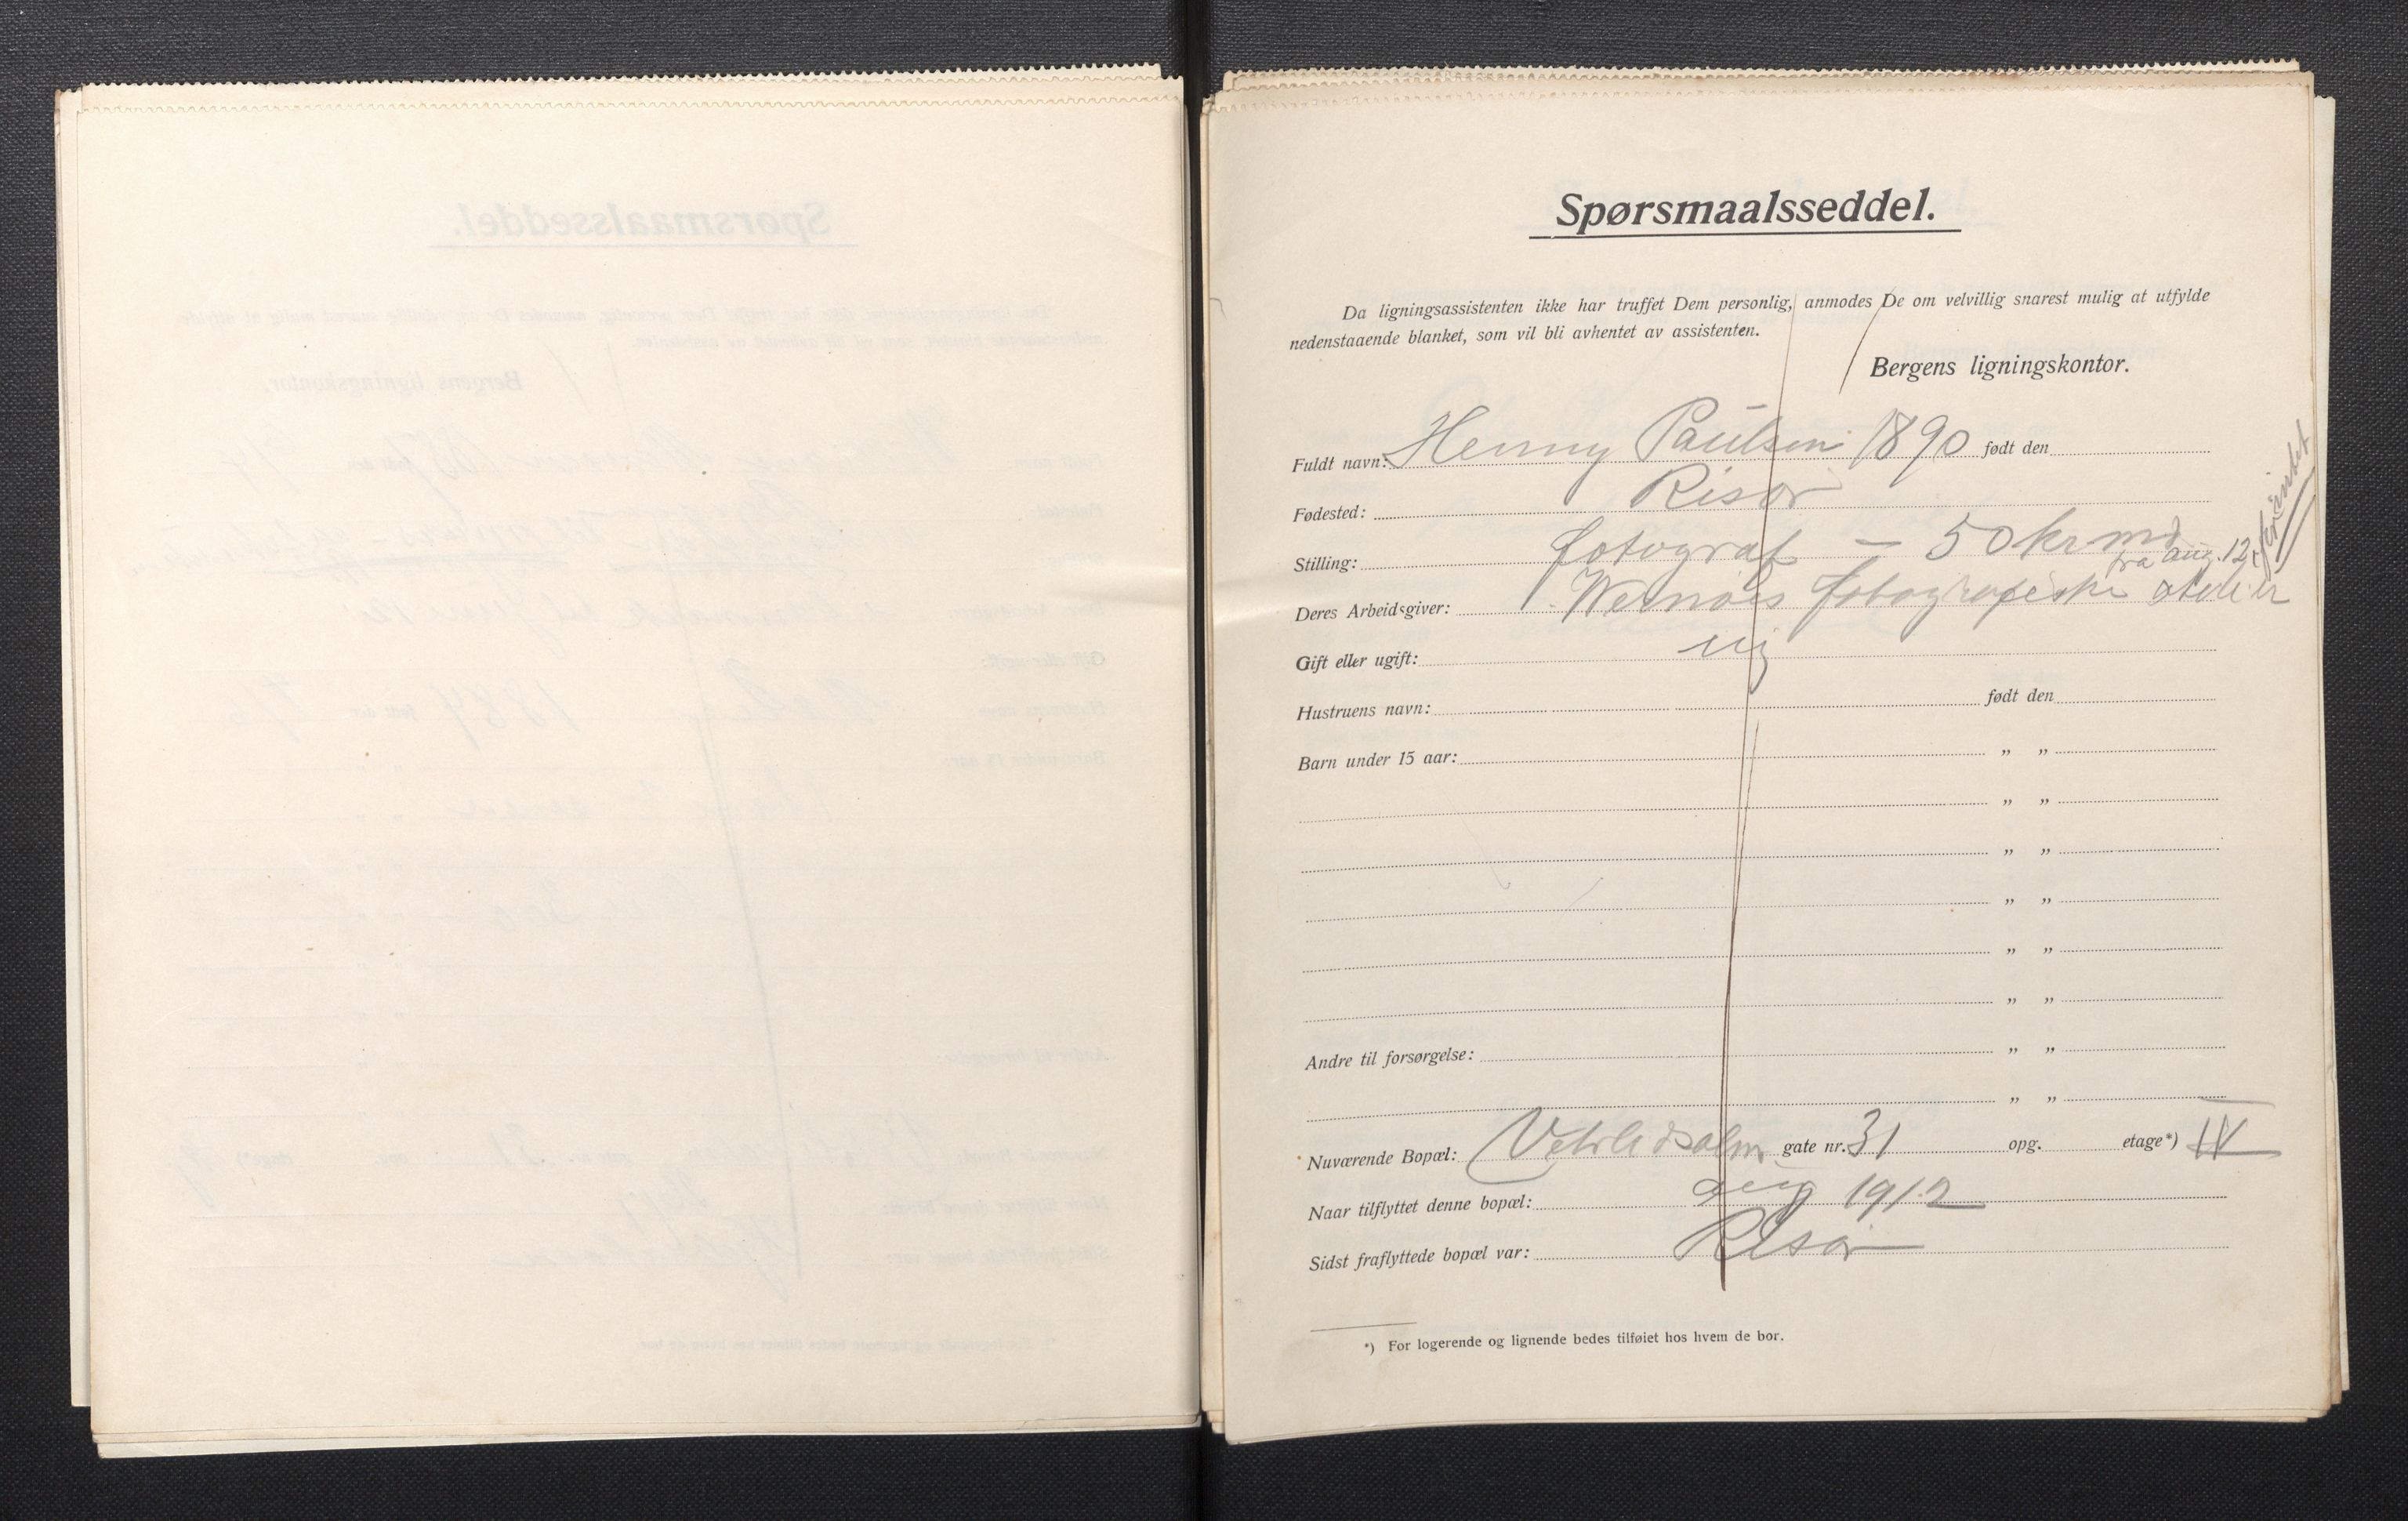 Spørsmaalsseddel.
Da ligningsassistenten ikke har truffet Dem personlig, anmodes De om velvillig snarest mulig at utfylde
nedenstaaende blanket, som vil bli avhentet av assistenten.
Bergens ligningskontor.
Fuldt navn: Henny Paulsen 1890 født den
Fødested: Risør
Stilling: fotograf – 50 kr md
fra aug. 12
Deres Arbeidsgiver: fotografiske atelier
Gift eller ugift: ug
Hustruens navn: født den
Barn under 15 aar: „ „
„ „
„ „
„ „
„ „
„ „
Andre til forsørgelse: „ „
„ „
Nuværende Bopæl: Vetrlidsalm gate nr. 31 opg. etage*) IV
Naar tilflyttet denne bopæl: aug 1912
Sidst fraflyttede bopæl var: Risør
*) For logerende og lignende bedes tilføiet hos hvem de bor.